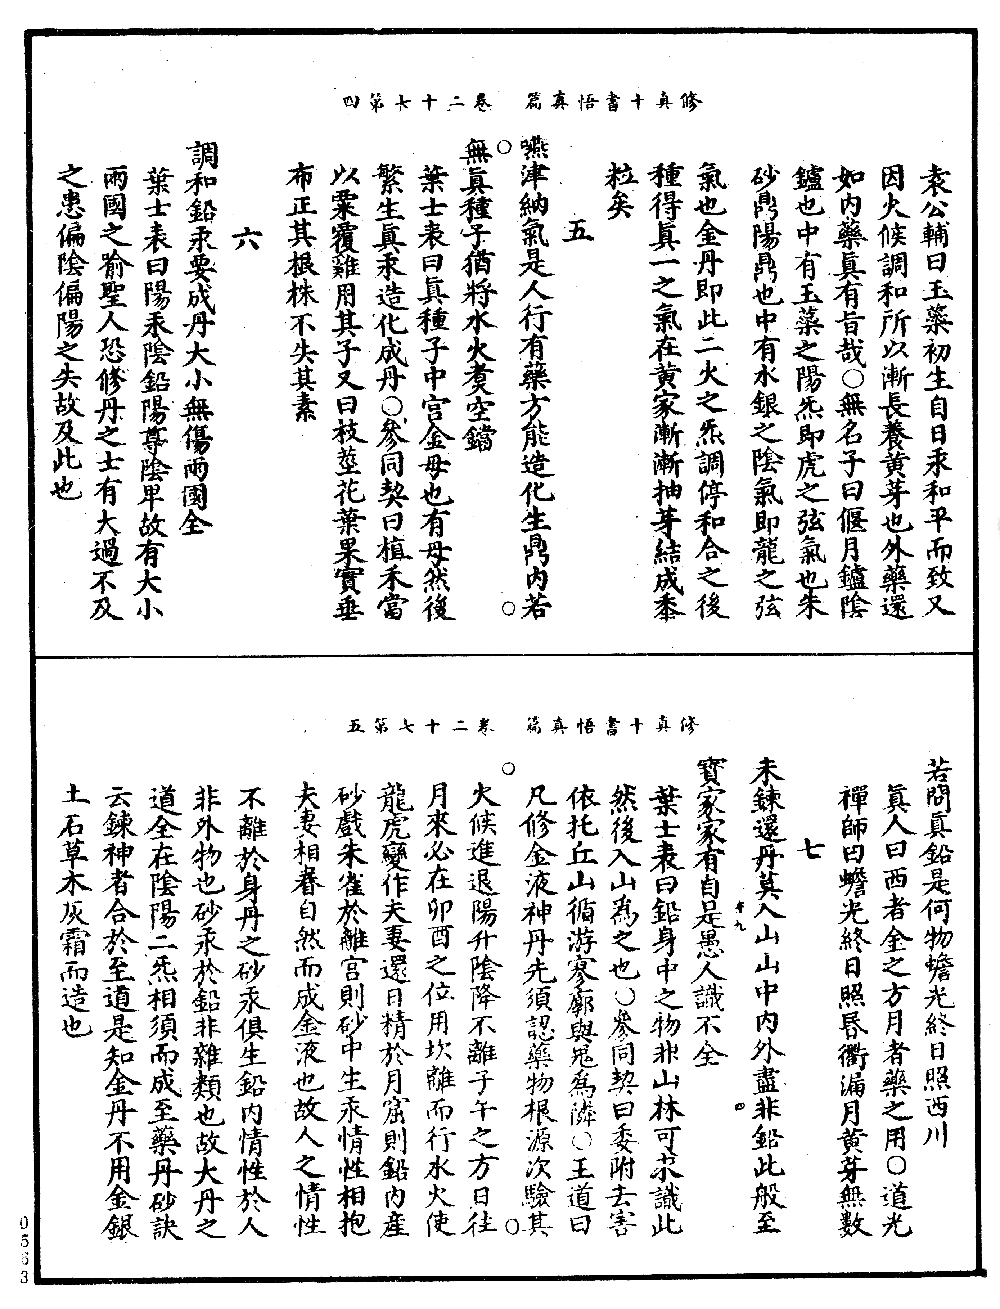 修真十書悟真篇　卷二十七第四
袁公輔曰玉蘂初生自日汞和平而致又
因火候調和所以漸長養黄芽也外藥還
如内藥真有旨哉○無名子曰偃月鑪陰
鑪也中有玉蘂之陽炁即虎之弦氣也朱
砂鼎陽鼎也中有水銀之陰氣即龍之弦
氣也金丹即此二火之炁調停和合之後
種得真一之氣在黄家漸漸抽芽結成黍
粒矣
五
嚥津納氣是人行有藥方能造化生鼎内若
無真種子猶將水火煑空鐺
葉士表曰真種子中宫金母也有母然後
繁生真汞造化成丹○參同契曰植禾當
以粟覆雞用其子又曰枝莖花葉果實垂
布正其根株不失其素
六
調和鉛汞要成丹大小無傷兩國全
葉士表曰陽汞陰鉛陽尊陰卑故有大小
兩國之喻聖人恐修丹之士有大過不及
之患偏陰偏陽之失故及此也
修真十書悟真篇　卷二十七第五
若問真鉛是何物蟾光終日照西川
真人曰西者金之方月者藥之用○道光
禪師曰蟾光終日照昏衢漏月黄芽無數
七
未鍊還丹莫入山山中内外盡非鉛此般至
寶家家有自是愚人識不全
葉士表曰鉛身中之物非山林可求識此
然後入山為之也○參同契曰委附去害
依托丘山循游寥廓與鬼為隣○王道曰
凡修金液神丹先須認藥物根源次驗其
火候進退陽升陰降不離子午之方日往
月來必在卯酉之位用坎離而行水火使
龍虎變作夫妻還日精於月窟則鉛内産
砂戲朱雀於離宫則砂中生汞情性相抱
夫妻相眷自然而成金液也故人之情性
不離於身丹之砂汞俱生鉛内情性於人
非外物也砂汞於鉛非雜類也故大丹之
道全在陰陽二炁相須而成至藥丹砂訣
云鍊神者合於至道是知金丹不用金銀
土石草木灰霜而造也
0563